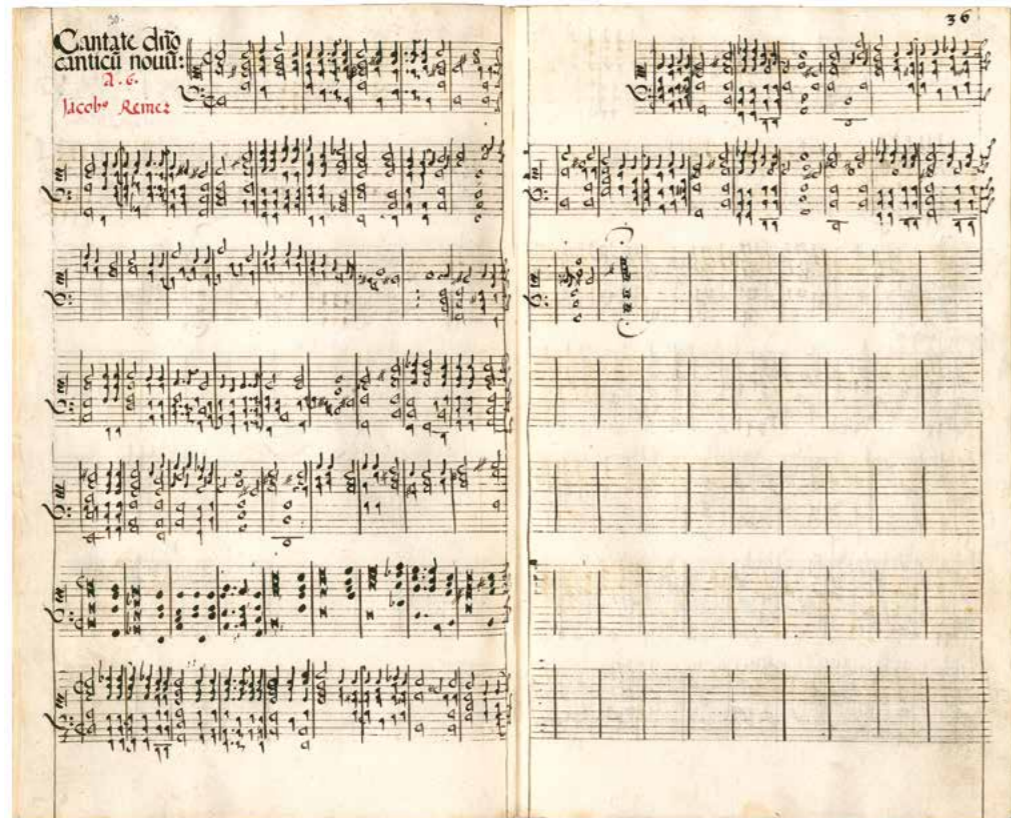 Cantate dn̄o
canticū nouū:
A. 6.
Jacobꝰ Reiner
36